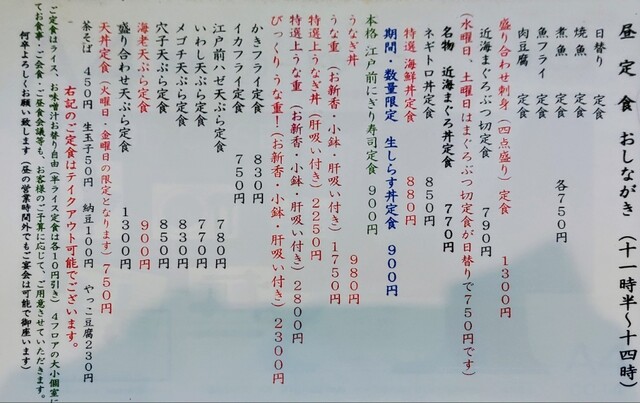 昼定食おしながき（十一時半～十四時）
日替り定食
焼魚定食
煮魚定食 各750円
魚フライ定食
肉豆腐定食
盛り合わせ刺身（四点盛り）定食 1300円
近海まぐろぶつ切定食 790円
（水曜日、土曜日はまぐろぶつ切定食が日替りで750円です）
名物 近海まぐろ丼定食 770円
ネギトロ丼定食 850円
特選海鮮丼定食 880円
期間・数量限定 生しらす丼定食 900円
本格 江戸前にぎり寿司定食 900円
うなぎ丼 980円
うな重（お新香・小鉢・肝吸い付き）1750円
特選上うなぎ丼（肝吸い付き）2250円
特選上うな重（お新香・小鉢・肝吸い付き）2800円
びっくりうな重！（お新香・小鉢・肝吸い付き）2300円
かきフライ定食 830円
イカフライ定食 750円
江戸前ハゼ天ぷら定食 780円
いわし天ぷら定食 770円
メゴチ天ぷら定食 830円
穴子天ぷら定食 850円
海老天ぷら定食 900円
盛り合わせ天ぷら定食 1300円
天丼定食（火曜日・金曜日の限定となります）750円
茶そば 450円 生玉子50円 納豆100円 やっこ豆腐230円
右記のご定食はテイクアウト可能でございます。
ご定食はライス、お味噌汁お替り自由（半ライス定食は各10円引き）4フロアの大小個室に
てお食事・ご会食・ご昼食会議等も、お客様のご予算に応じて、ご用意させていただきます。
何卒よろしくお願い致します（昼の営業時間外でもご宴会は可能で御座います）